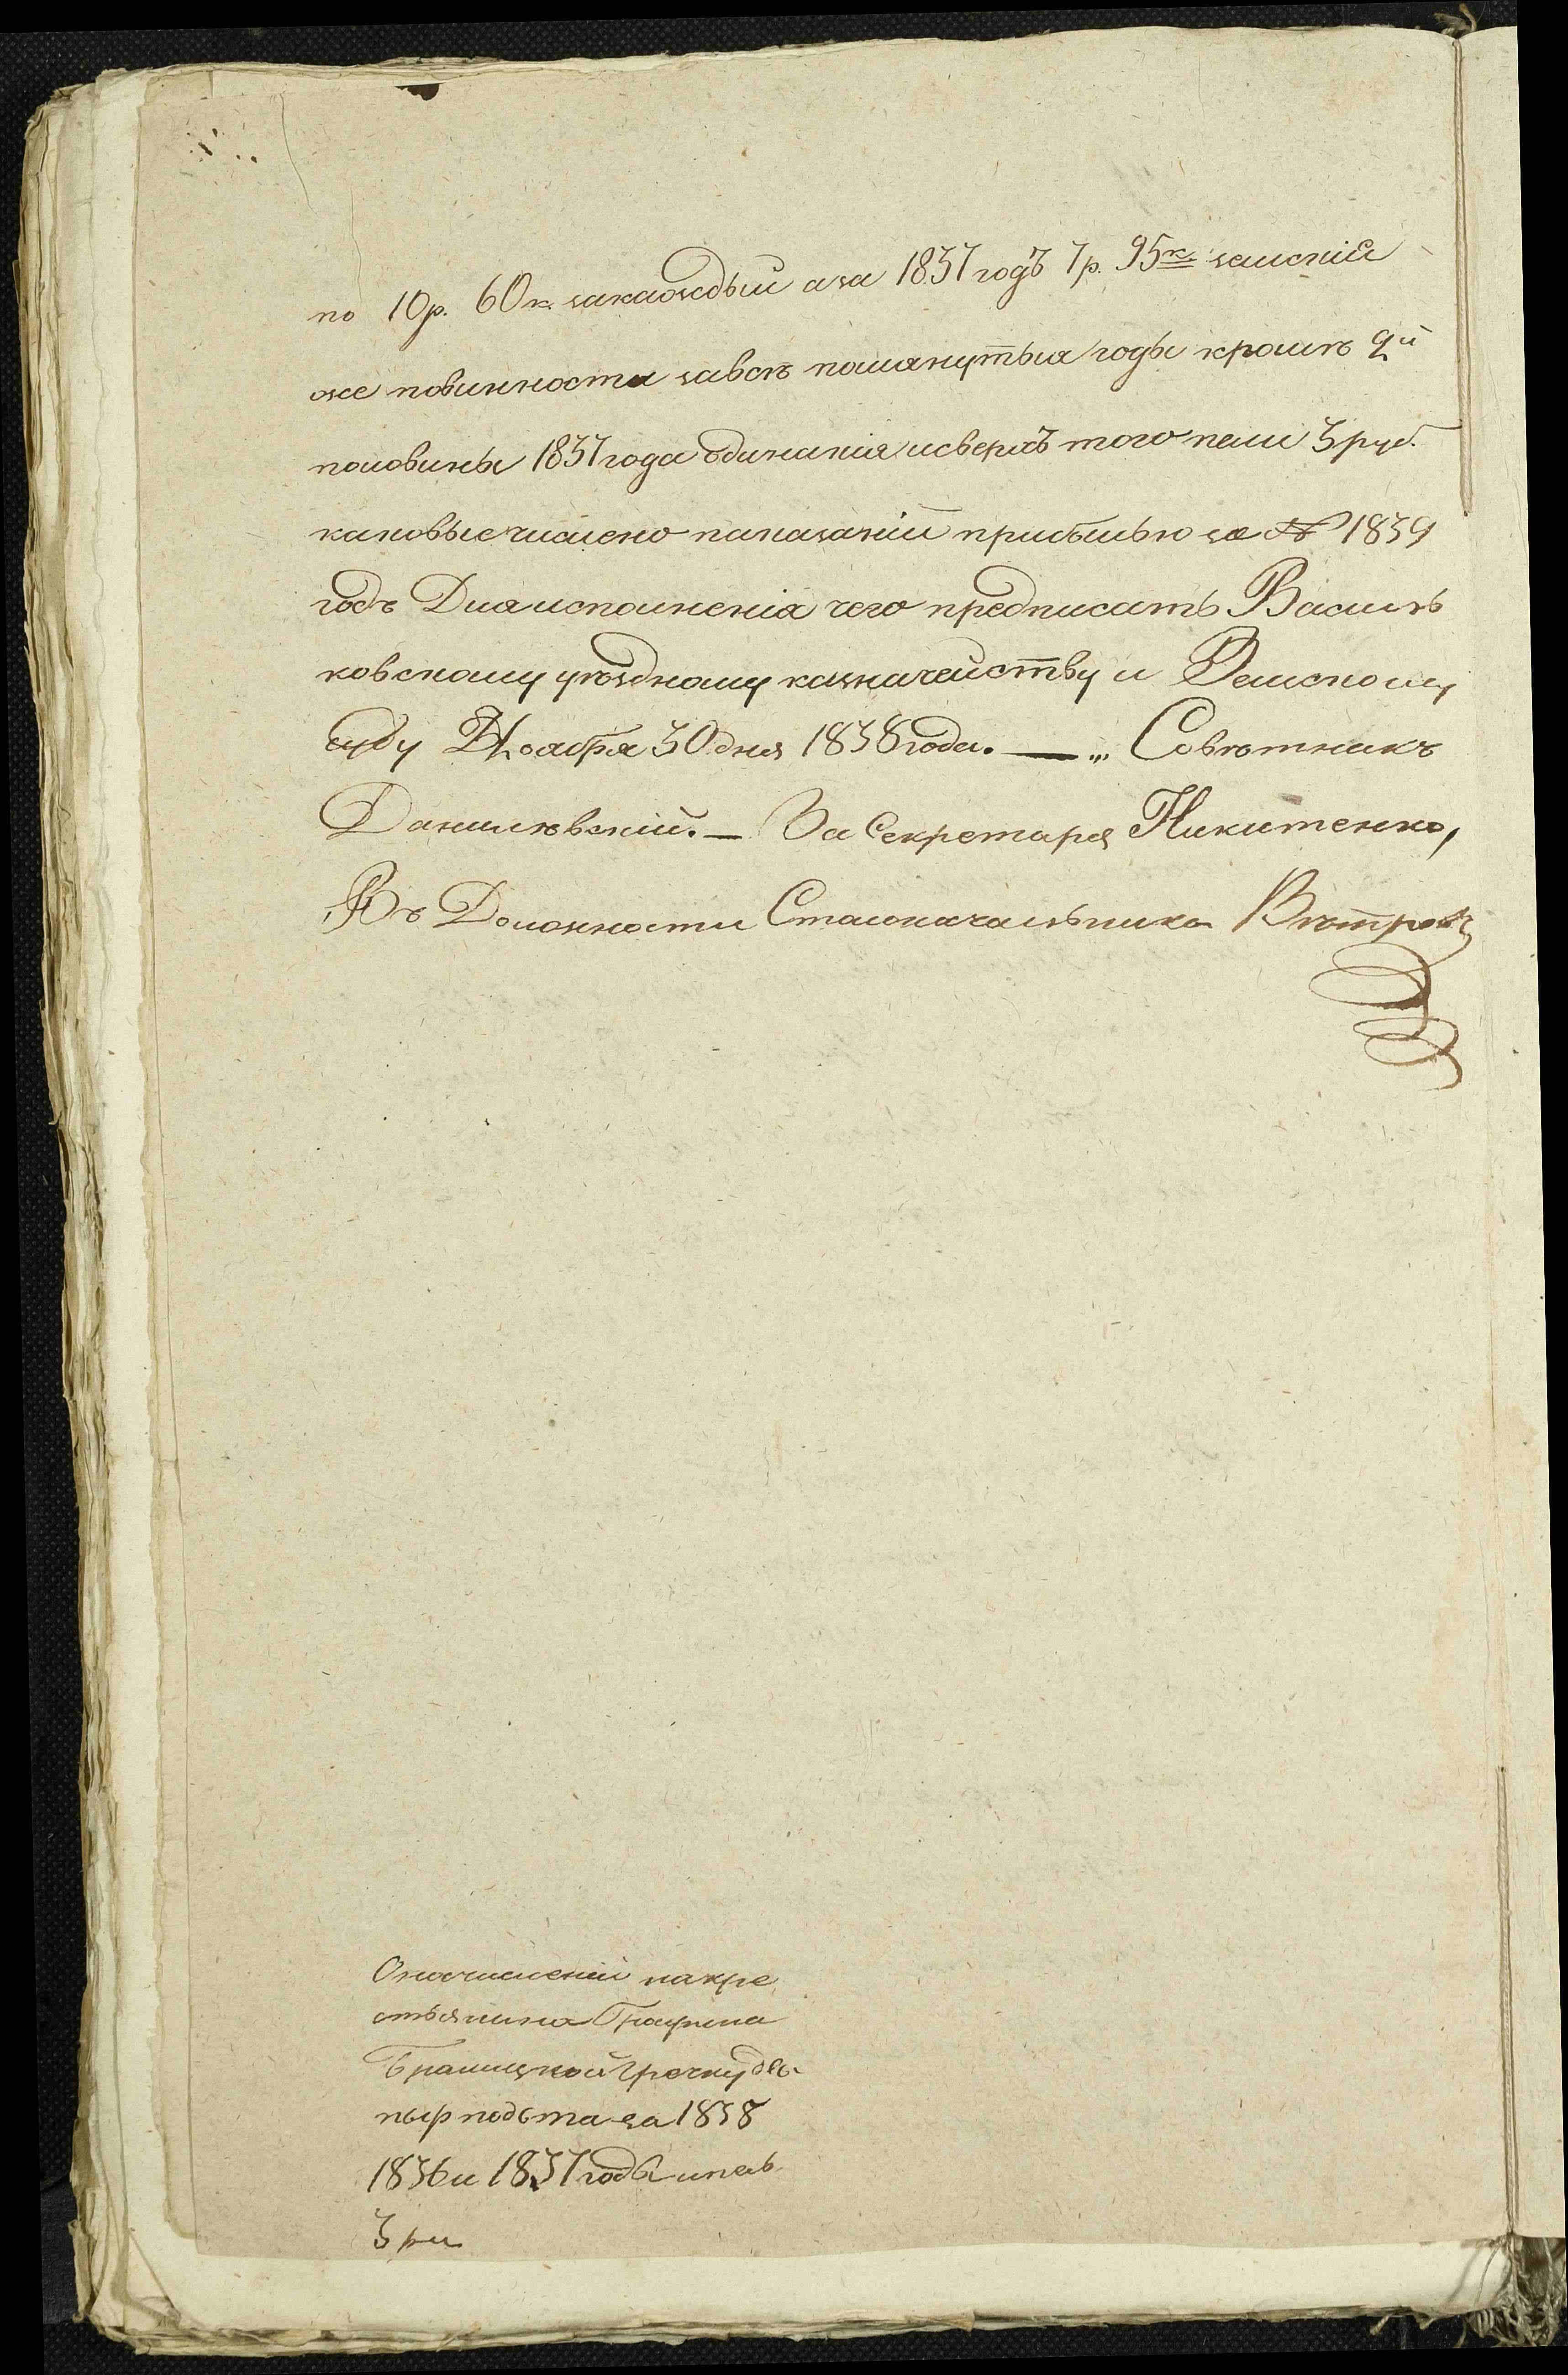 по 10 р. 60 к. закаждый аза 1837 годъ 7 р. 95 к. земскіе
же повинности завсѣ помянутыя годы кромѣ 2й
половины 1837 года единакія исверхъ того пени 3 руб.
каковые числено показаній прибылью за 1839
годъ Для исполненія чего предписать Василь
ковскому уѣздному казначейству и Земскому
суду Ноября 30 дня 1838 года. — „ Совѣтникъ
Данилѣвскій. — За Секретаря Никитенко,
Въ Должности Столоначальника Вѣтровъ
Оначислении накре
стьянина Графини
Браницкой Гречку
за 1838
1836 и 1837 года
3 ру